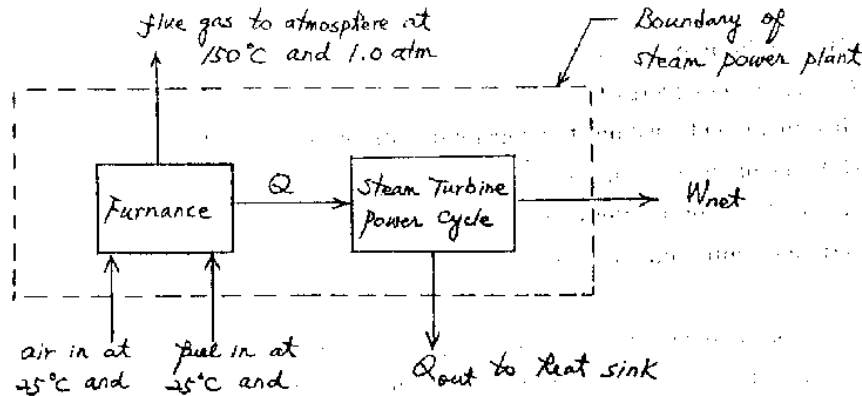 flue gas to atmosphere at
150°C and 1.0 atm
Boundary of
steam power plant
Furnance
Q
Steam Turbine
Power Cycle
Wnet
air in at
25°C and
fuel in at
25°C and
Qout to heat sink